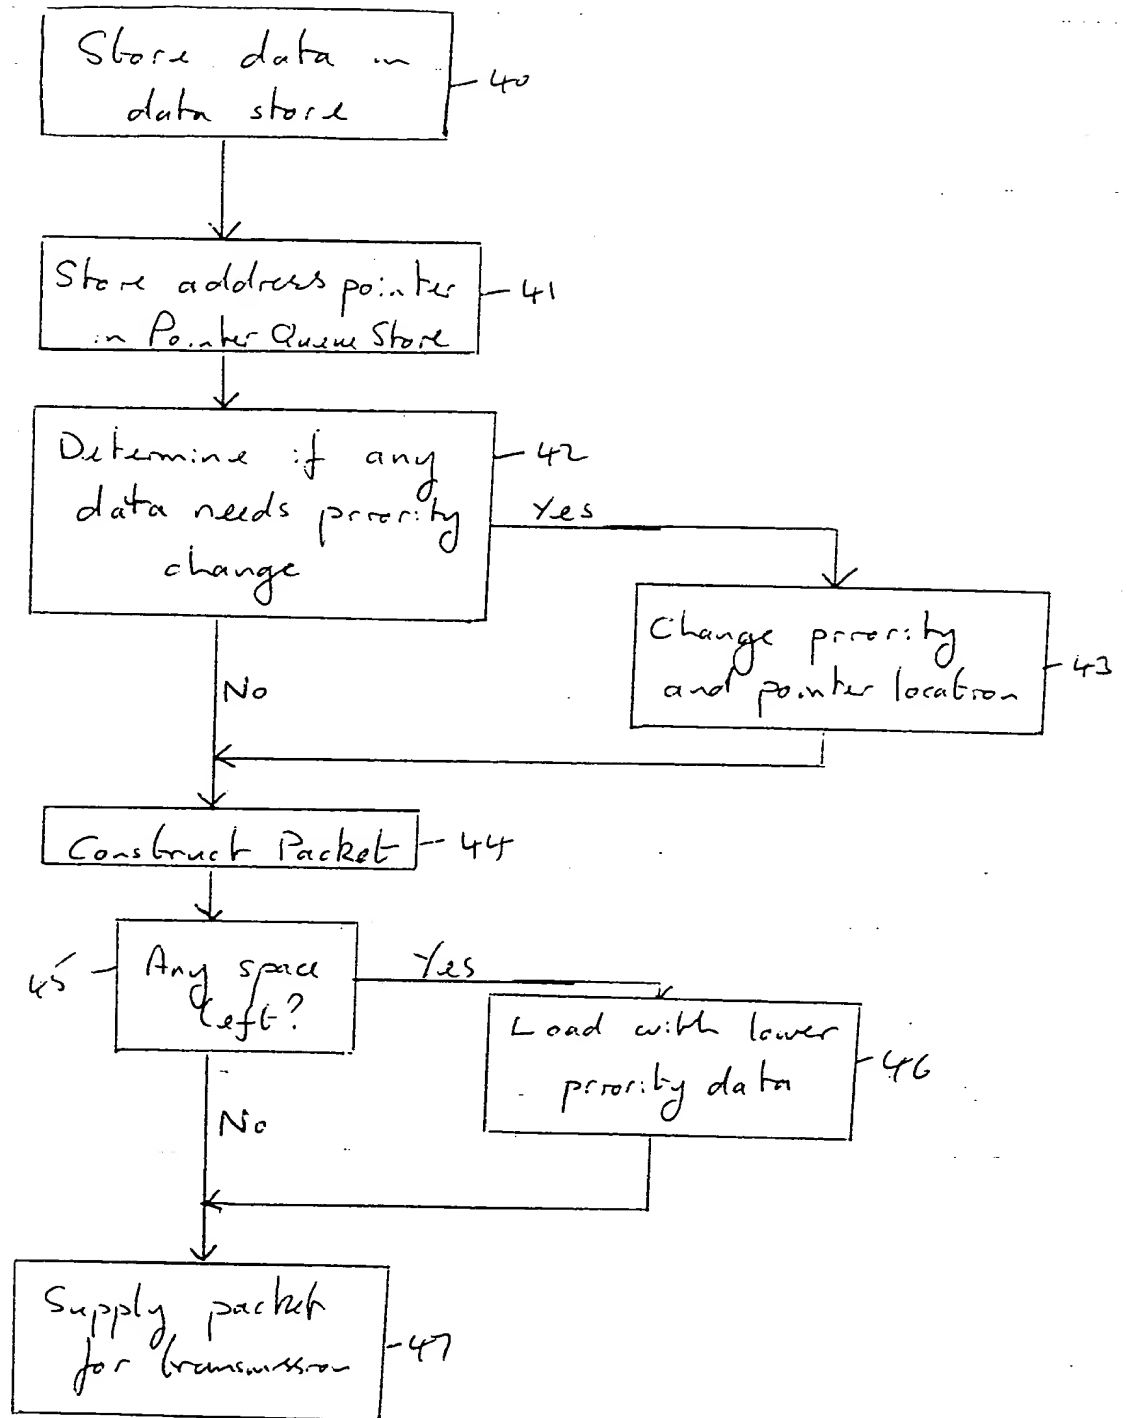 Store data in
data store
40
Store address pointer
in Pointer Queue Store
41
Determine if any
data needs priority
change
42
Yes
No
Change priority
and pointer location
43
Construct Packet
44
Any space
left?
45
Yes
No
Load with lower
priority data
46
Supply packet
for transmission
47